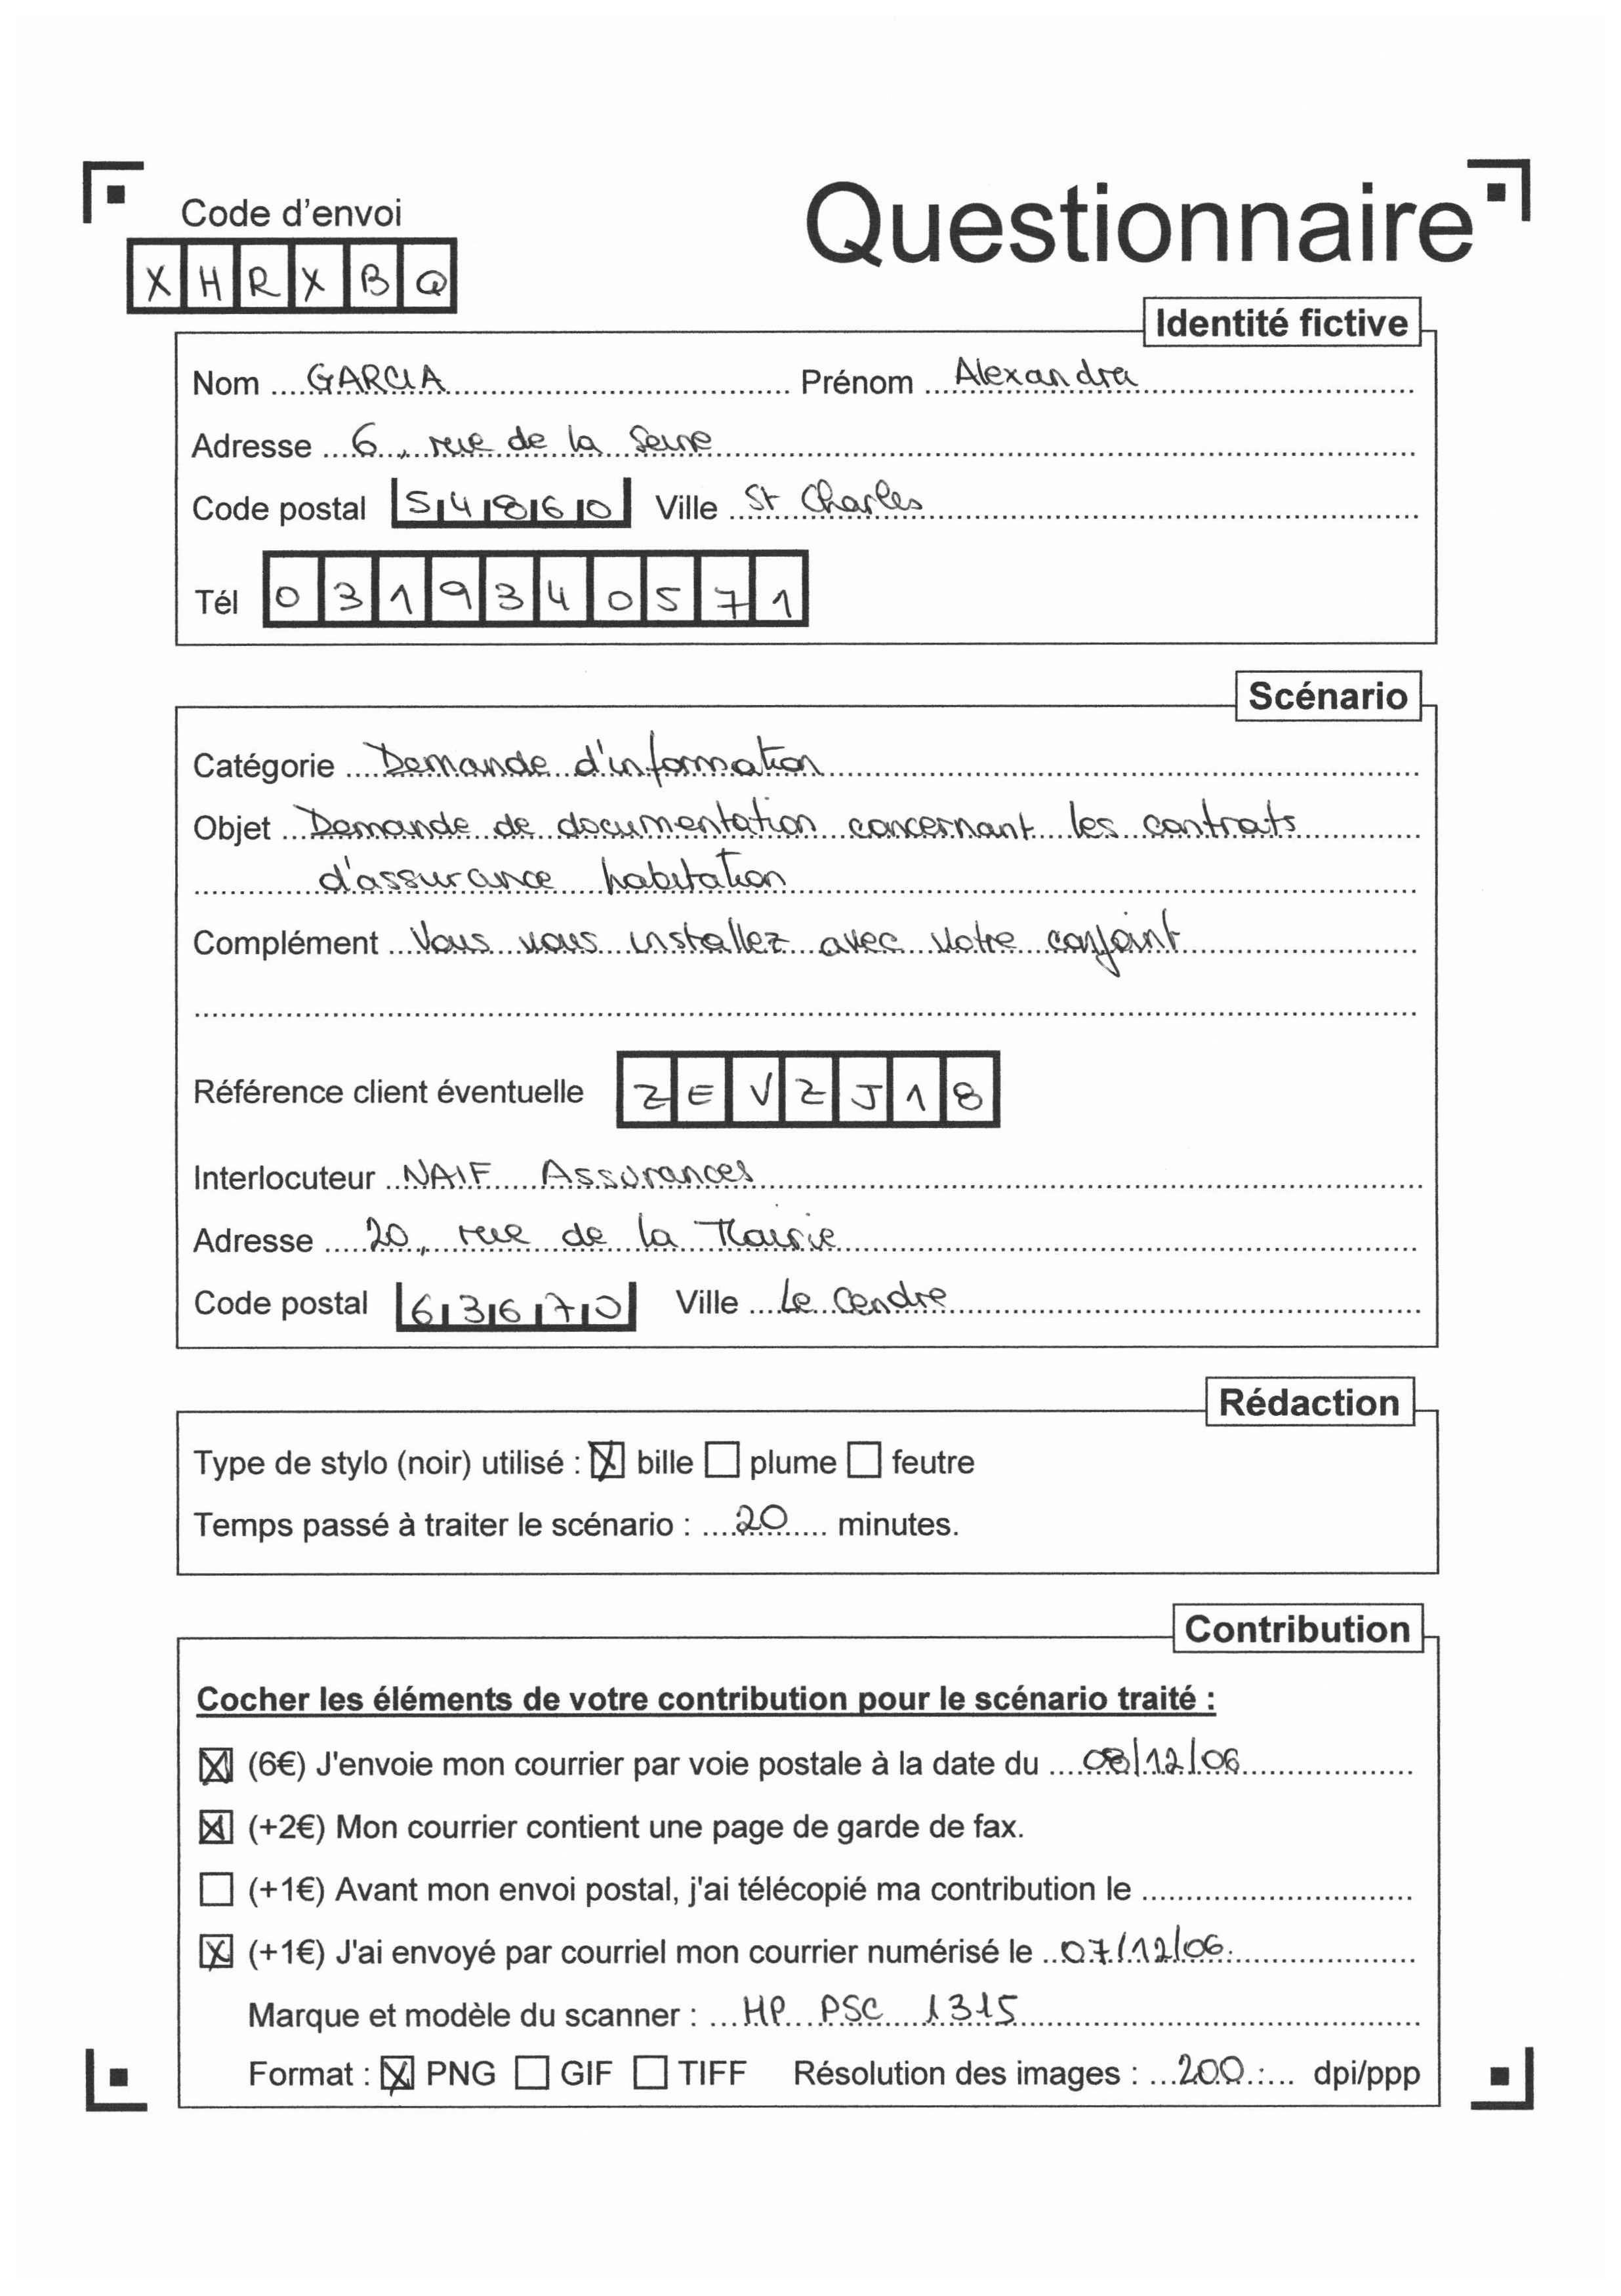 Code d'envoi
XHRXBQ
Questionnaire
Identité fictive
Nom GARCIA Prénom Alexandra
Adresse 6, rue de la Seine
Code postal 54860 Ville St Charles
Tél 0319340571
Scénario
Catégorie Demande d'information
Objet Demande de documentation concernant les contrats
d'assurance habitation
Complément Vous vous installez avec votre conjoint
Référence client éventuelle ZEVZJ18
Interlocuteur NAIF Assurances
Adresse 20, rue de la Mairie
Code postal 63670 Ville Le Cendre
Rédaction
Type de stylo (noir) utilisé : ☒ bille ☐ plume ☐ feutre
Temps passé à traiter le scénario : 20 minutes.
Contribution
Cocher les éléments de votre contribution pour le scénario traité :
☒ (6€) J'envoie mon courrier par voie postale à la date du 08/12/06
☒ (+2€) Mon courrier contient une page de garde de fax.
☐ (+1€) Avant mon envoi postal, j'ai télécopié ma contribution le
☒ (+1€) J'ai envoyé par courriel mon courrier numérisé le 07/12/06.
Marque et modèle du scanner : HP PSC 1315
Format : ☒ PNG ☐ GIF ☐ TIFF Résolution des images : 200 dpi/ppp